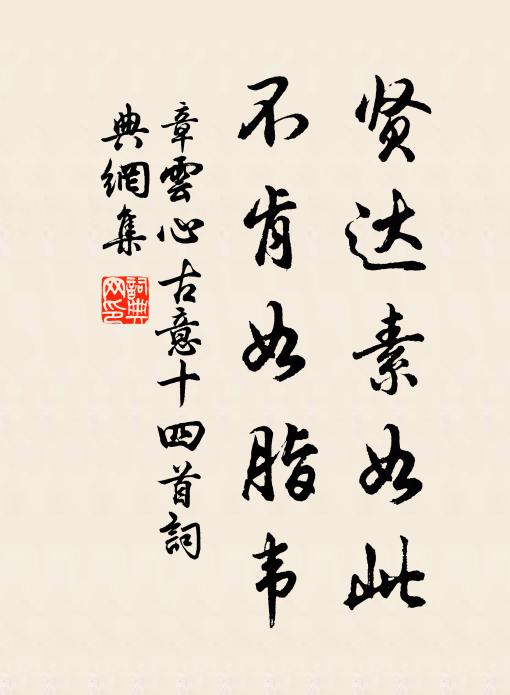 贤达素如此
不肯如脂韦
章雲心古意十四首詞
典網集
詞典网印